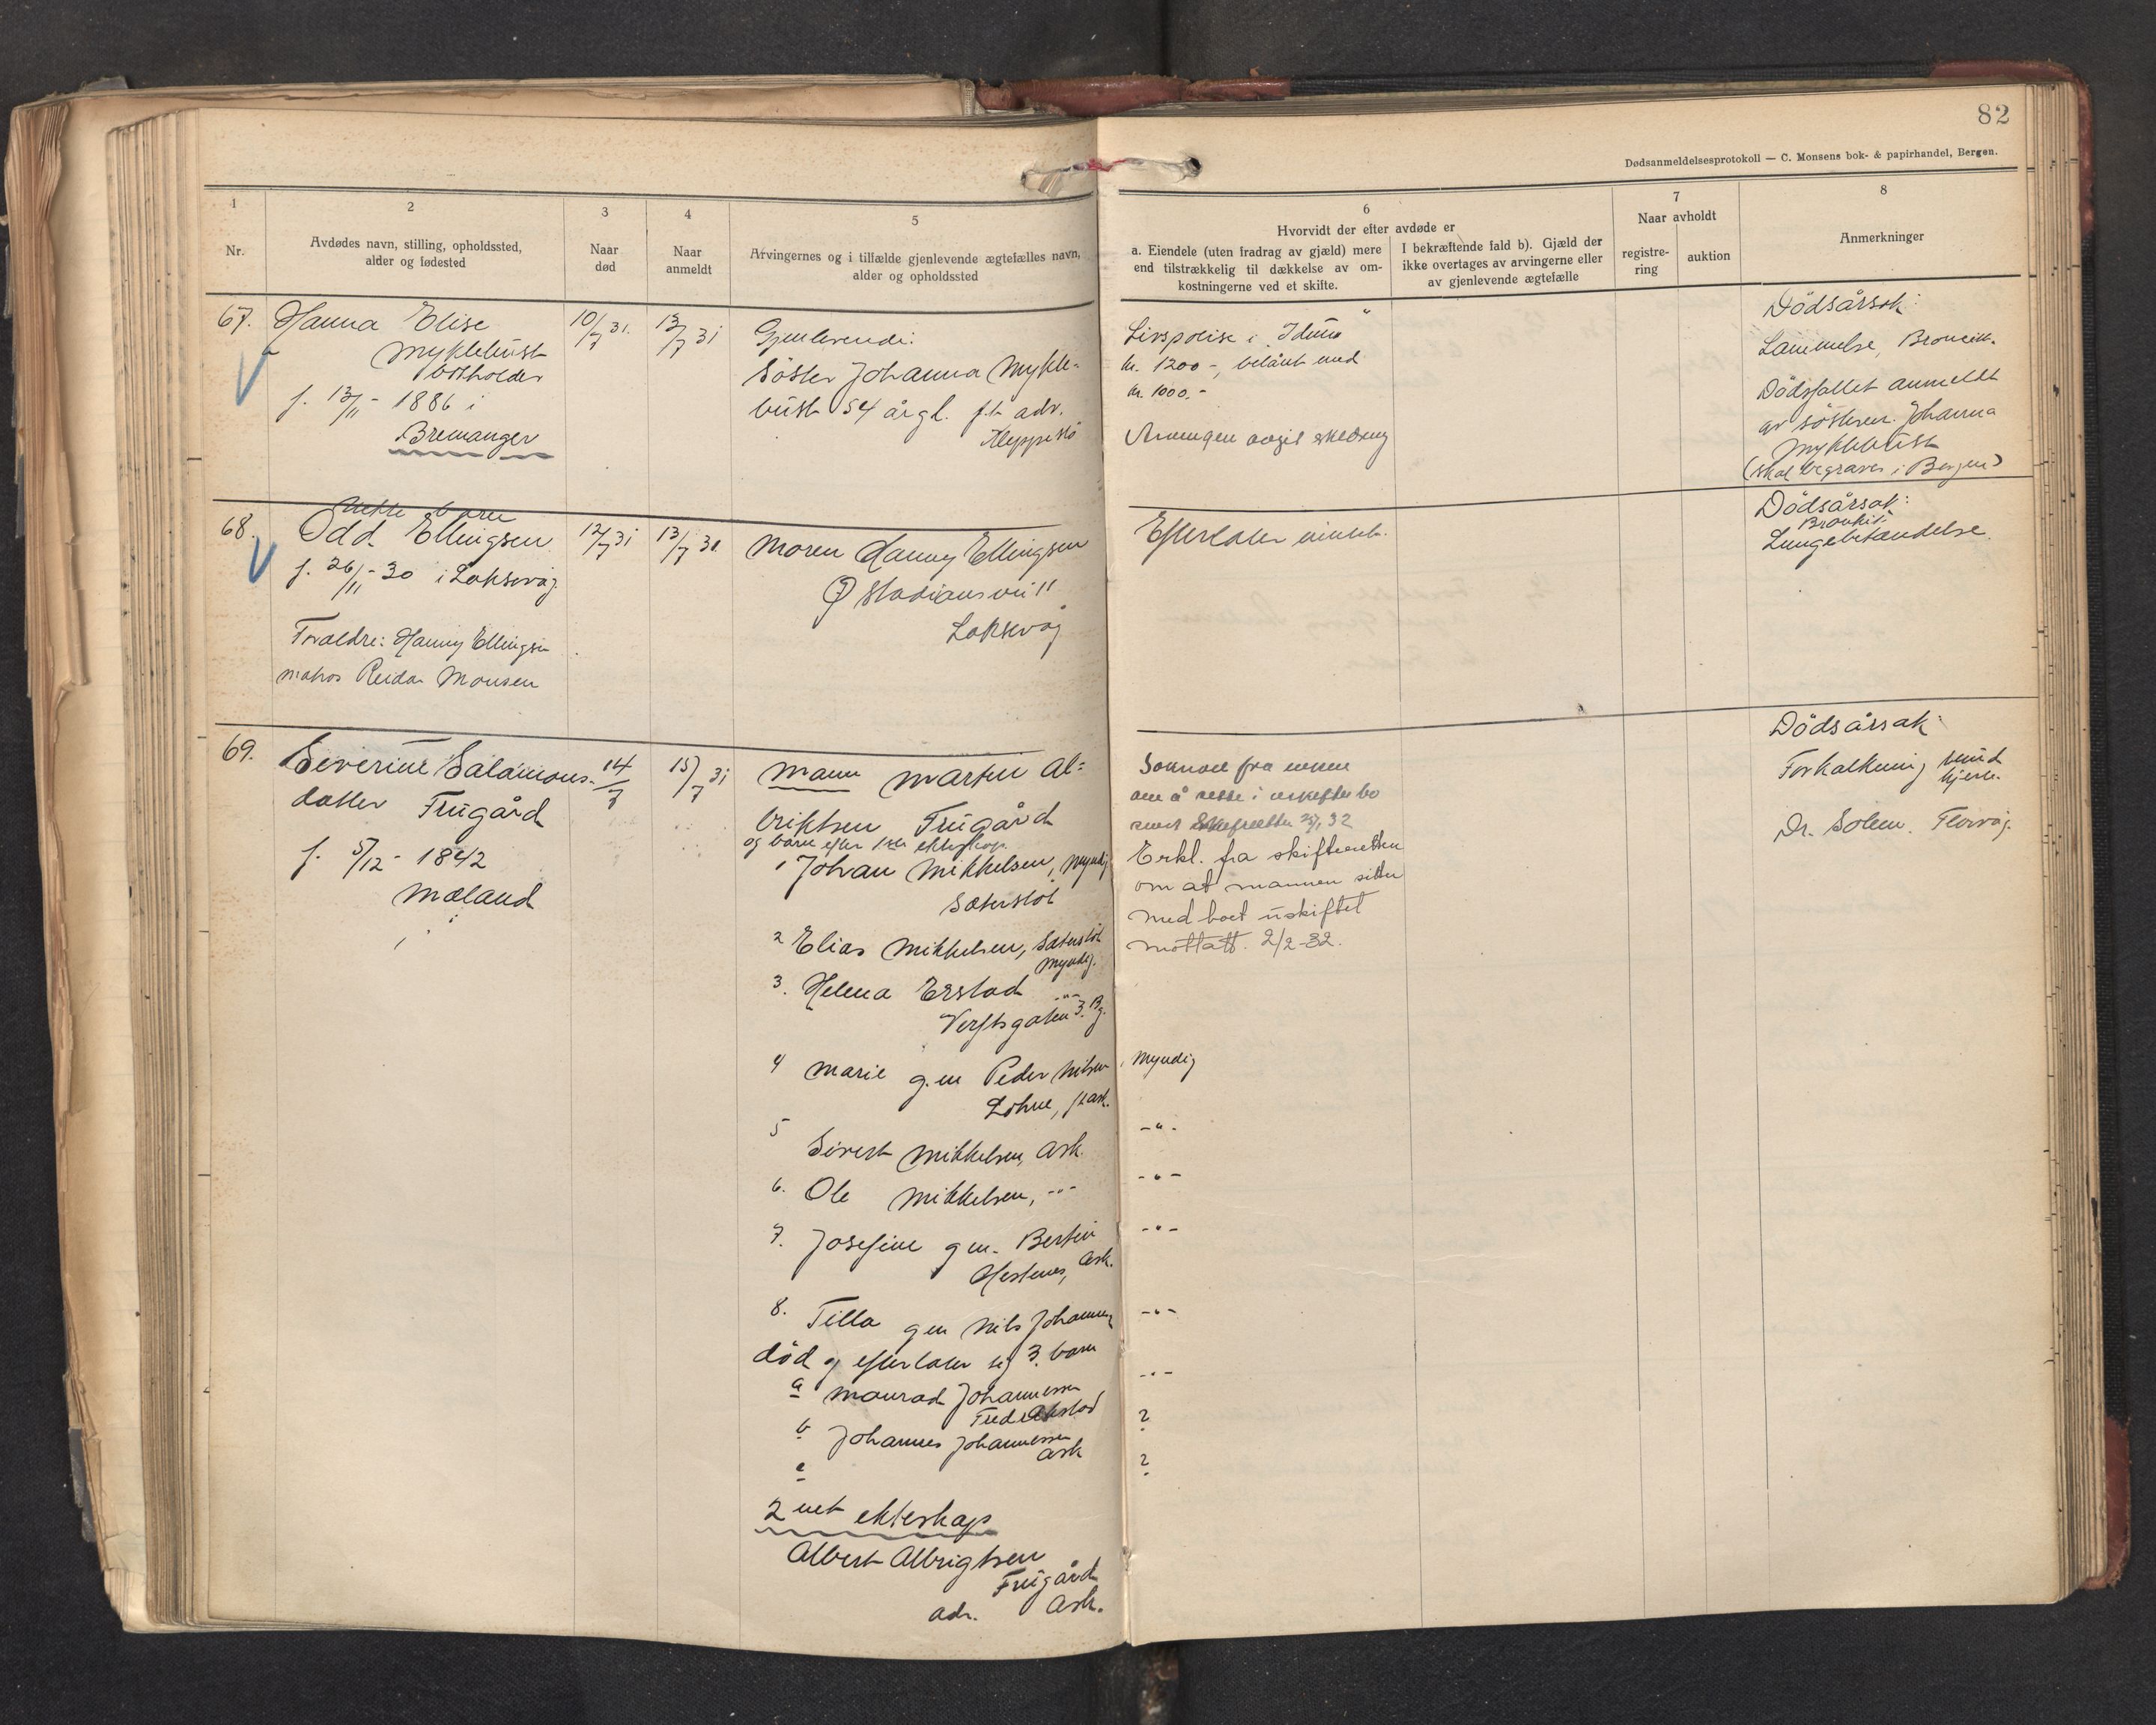 82
Dødsanmeldelsesprotokoll — C. Monsens bok- & papirhandel, Bergen.
1
Nr.
2
Avdødes navn, stilling, opholdssted,
alder og fødested
3
Naar
død
4
Naar
anmeldt
5
Arvingernes og i tilfælde gjenlevende ægtefælles navn,
alder og opholdssted
6
Hvorvidt der efter avdøde er
a. Eiendele (uten fradrag av gjæld) mere
end tilstrækkelig til dækkelse av om-
kostningerne ved et skifte.
I bekræftende fald b). Gjæld der
ikke overtages av arvingerne eller
av gjenlevende ægtefælle
7
Naar avholdt
registre-
ring
auktion
8
Anmerkninger
67.
Hanna Elise
Myklebust
f. 13/11 - 1886 i
Bremanger
10/7 31.
13/7 31
Gjenlevende:
Søster Johanna Mykle-
bust 54 år gl. f.t. adr.
Kleppestø
Livspolise i "Iduna"
kr. 1200 -, belånt med
kr. 1000.-
Dödsårsak:
Lammelse,
Dödsfallet anmeldt
av söstren Johanna
Myklebust
(skal begraves i Bergen)
68.
Odd Ellingsen
f. 26/11 - 30 i Laksevåg
Foraldre: Hanny Ellingsen
matros Reidar Monsen
12/7 31
13/7 31.
Moren Hanny Ellingsen
11
Laksevåg
Efterlater intet.
Dödsårsak:
Bronkit
Lungebetændelse.
69.
Severine Salamons-
datter Frugård
f. 5/12 - 1842
Mæland
14/7
15/7 31
Mann Martin Al-
briktsen Frugård
og barn efter 1ste ekteskap
1 Johan Mikkelsen, myndig
2 Elias Mikkelsen,
myndig.
3. Helena Erstad -"-
Verftsgaten 3. Bg.
4 Marie g.m Peder Nilsen
Löhne, Ask.
5
Sivert Mikkelsen, Ask.
6. Ole Mikkelsen, -"-
7. Josefine g m. Bertin
Hestenes, Ask.
8. Tilla g m Nils Johannesen
död og efterlater sig 3 barn
a Monrad Johannessen
Fredrikstad
b Johannes Johannessen
Ask
c
2net ekteskap
Albert Albrigtsen
Frugård
adr. Ask.
Søknad fra
om å sitte i uskiftet bo
sendt skifteretten 25/1 32
Erkl. fra skifteretten
om at mannen sitter
med boet uskiftet
mottatt. 2/2-32.
Myndig
-"-
-"-
-"-
-"-
-"-
?
?
Dödsårsak:
Forkalkning
hjerte.
Dr. Solem. Florvåg.